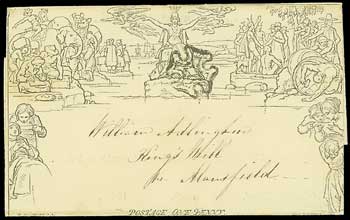 William Allingham
King's Mill
Nr Mansfield
POSTAGE ONE PENNY.